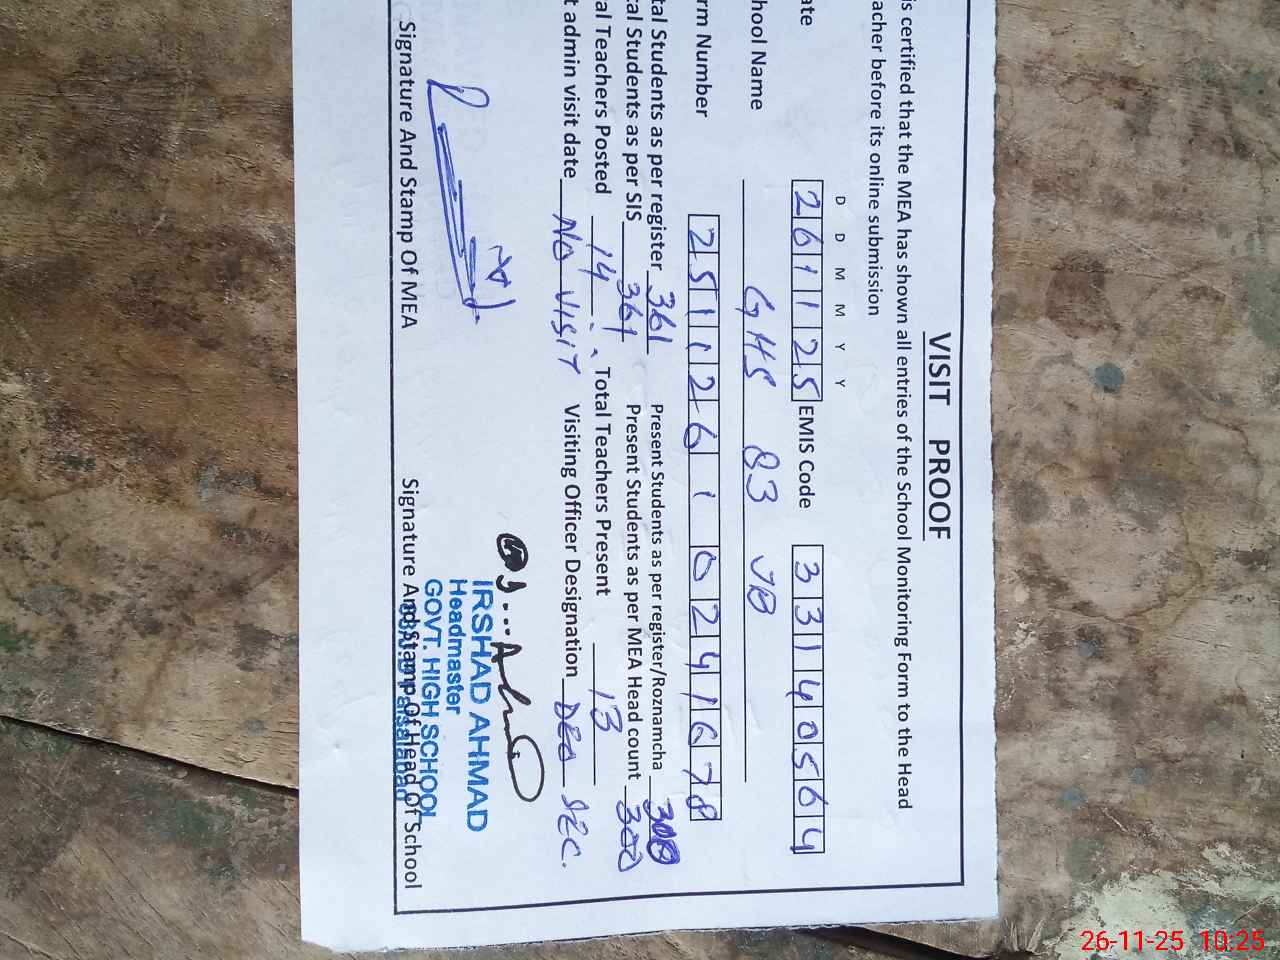 VISIT PROOF
is certified that the MEA has shown all entries of the School Monitoring Form to the Head
acher before its online submission
D D M M Y Y
ate 261125 EMIS Code 33140564
hool Name GHS 83 JB
rm Number 2511261024 1678
tal Students as per register 361 Present Students as per register/Roznamcha 300
tal Students as per SIS 361 Present Students as per MEA Head count 300
al Teachers Posted 14 Total Teachers Present 13
t admin visit date No VISIT Visiting Officer Designation DEO SEC.
IRSHAD AHMAD
Headmaster
GOVT. HIGH SCHOOL
Faisalabad
Signature And Stamp Of MEA Signature And Stamp Of Head Of School
26-11-25 10:25